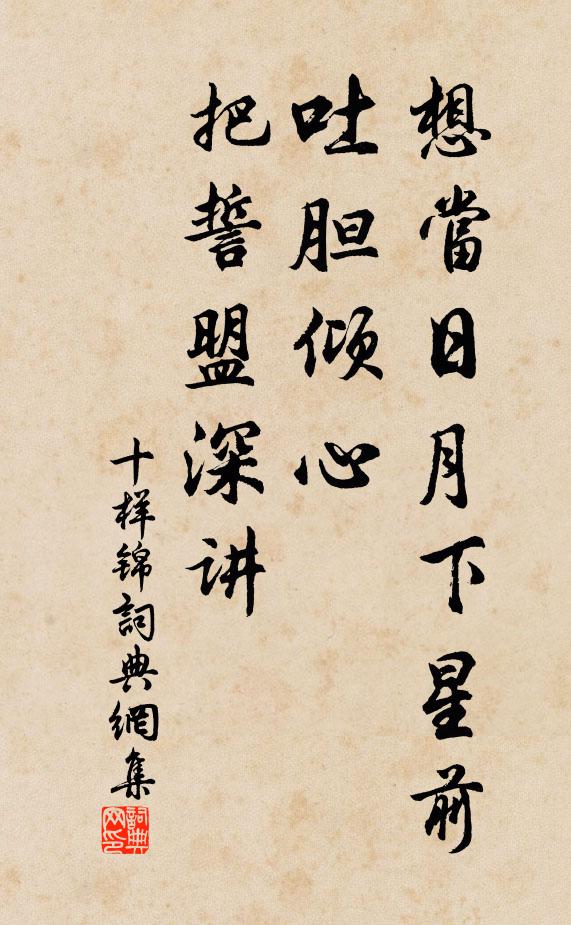 想當日月下星前
吐胆倾心
把誓盟深讲
十样锦詞典網集
詞典
网印